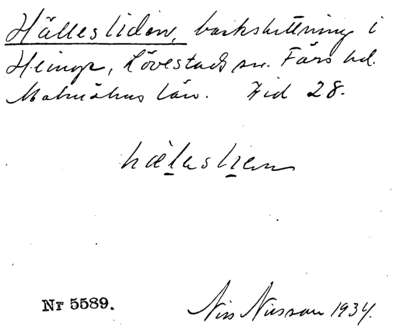 Hällesliden, backsluttning i
Heinge, Lövestads sn. Färs hd.
Malmöhus län. Fid 28.
hælesliən
Nr 5589.
Nils Nilsson 1934.